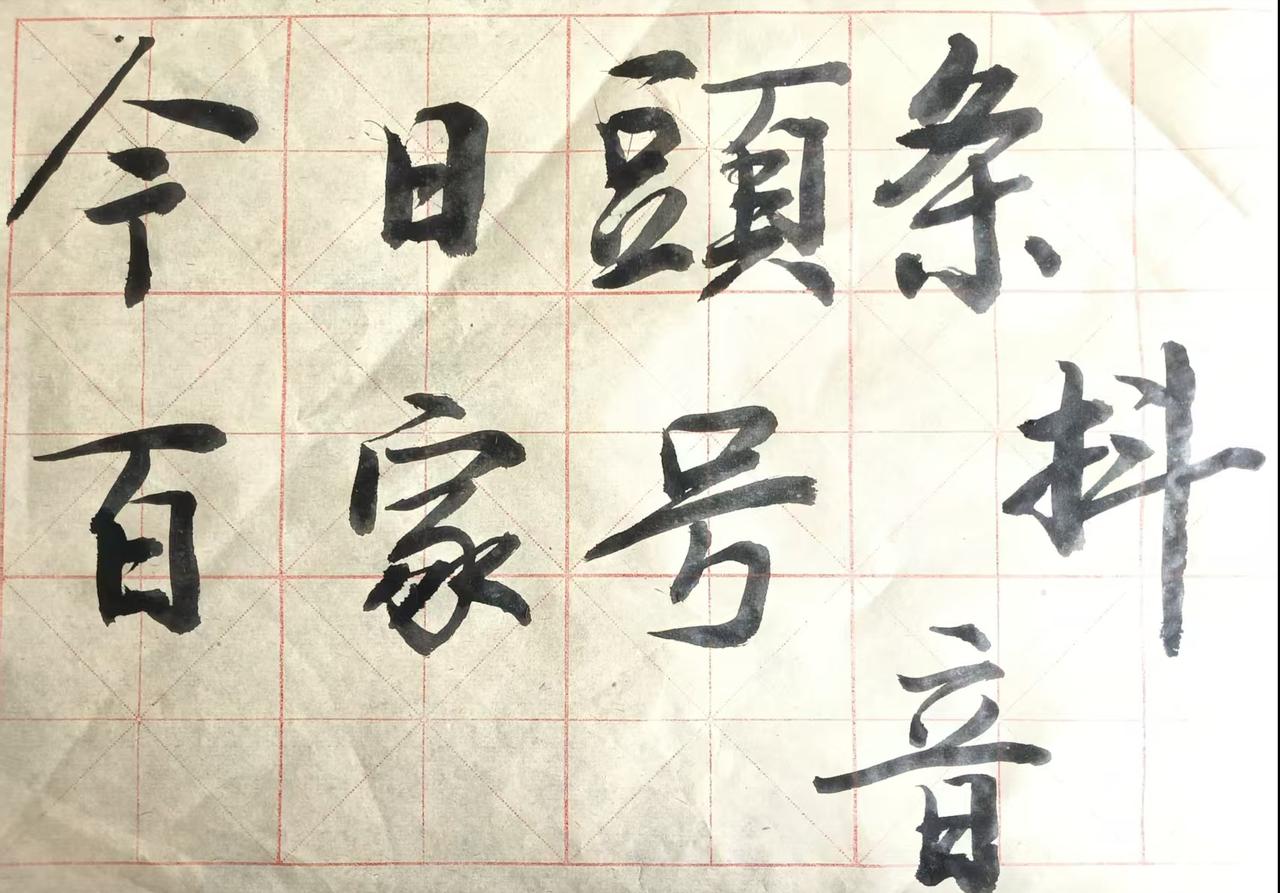 今日頭条
百家号
抖音